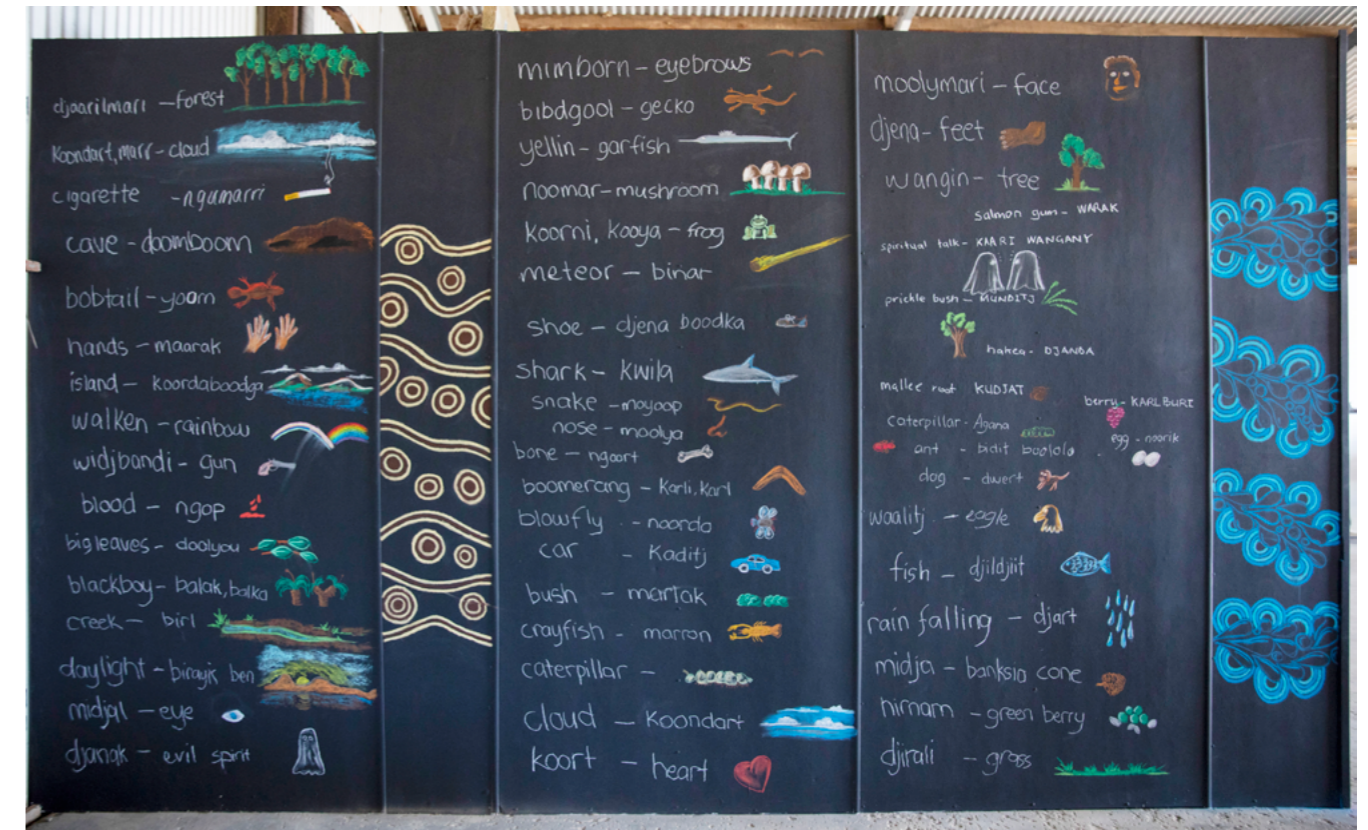 djaarilmari - forest
Koondart, marr - cloud
cigarette - ngumarri
cave - doomboom
bobtail - yoom
hands - maarak
island - koordaboodga
walken - rainbow
widjbandi - gun
blood - ngop
big leaves - doolyou
blackboy - balak, balka
creek - birl
daylight - birayik ben
midjal - eye
djanak - evil spirit
mimborn - eyebrows
bibdgool - gecko
yellin - garfish
noomar - mushroom
koorni, kooya - frog
meteor - binar
shoe - djena boodka
shark - kwila
snake - moyoop
nose - moolya
bone - ngoort
boomerang - Karli, Karl
blowfly - noorda
car - Kaditj
bush - martak
crayfish - marron
caterpillar -
cloud - Koondart
koort - heart
moolymari - face
djena - feet
wangin - tree
salmon gum - WARAK
spiritual talk - KAARI WANGANY
prickle bush - MUNDITJ
hakea - DJANDA
mallee root KUDJAT
berry - KARLBURI
caterpillar - Agana
egg - noorik
ant - bidit
dog - dwert
waalitj - eagle
fish - djildjiit
rain falling - djart
midja - banksia cone
hirnam - green berry
djirali - grass